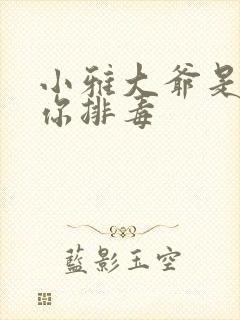 小雅大爷是
你排毒
藍影玉空